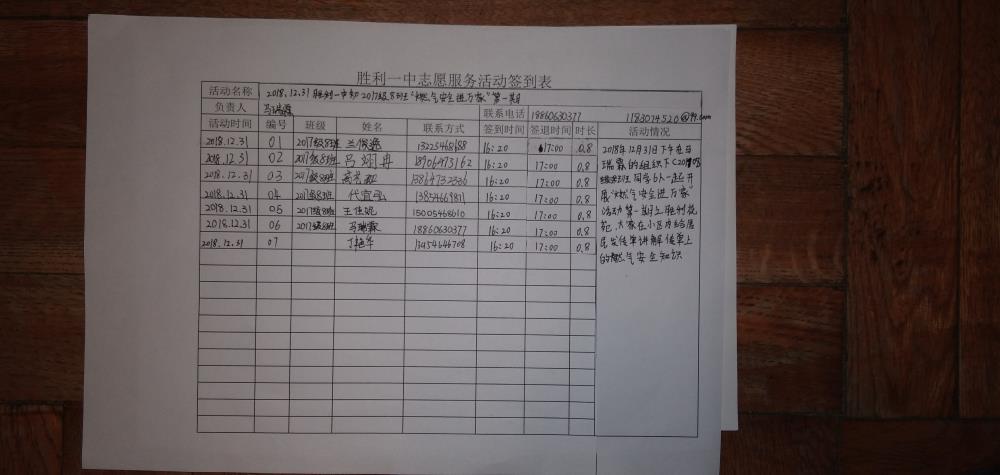 胜利一中志愿服务活动签到表
活动名称 2018.12.31 胜利一中初2017级8班"燃气安全进万家"第一期
负责人 马瑞霖 联系电话 18860630377 1183014520@qq.com
活动时间 编号 班级 姓名 联系方式 签到时间 签退时间 时长 活动情况
2018.12.31 01 2017级8班 兰俊逸 13225468688 16:20 17:00 0.8
2018.12.31 02 2017级8班 吕翊冉 18906473162 16:20 17:00 0.8
2018.12.31 03 2017级8班 13864732336 16:20 17:00 0.8
2018.12.31 04 2017级8班 代宜弘 13854669811 16:20 17:00 0.8
2018.12.31 05 2017级8班 王佳妮 15005468610 16:20 17:00 0.8
2018.12.31 06 2017级8班 马瑞霖 18860630377 16:20 17:00 0.8
2018.12.31 07 丁艳华 13454644708 16:20 17:00 0.8
2018年12月31日下午在马
瑞霖的组织下
同学6人一起开
展"燃气安全进万家"
活动第一期在胜利花
苑,大家在小区内给居
民发传单讲解传单上
的燃气安全知识